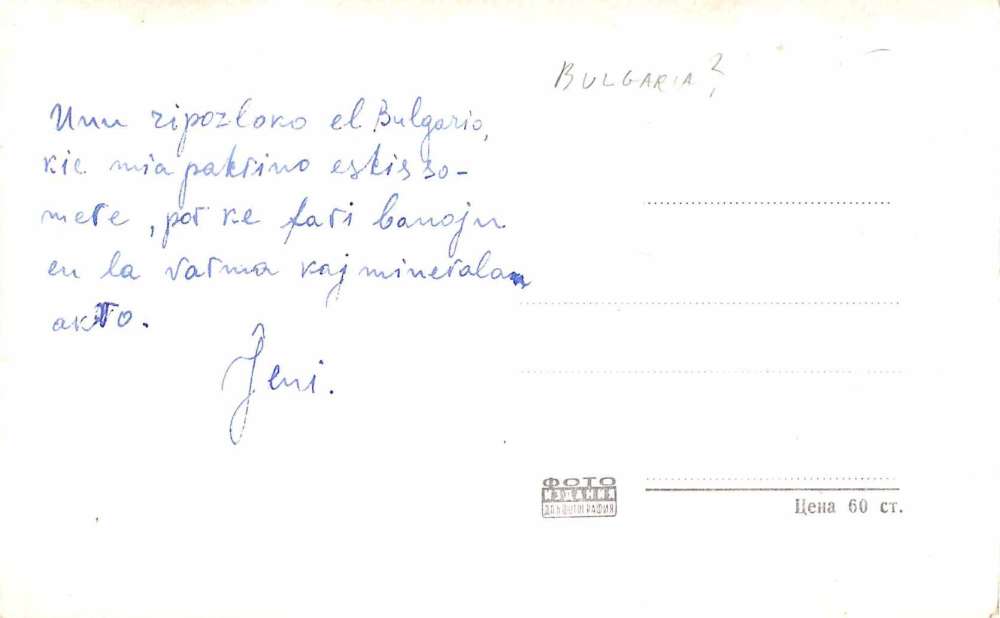 BULGARIA?
Unu ripozloko el Bulgario,
kie mia patrino estis so-
mere, por ke fari banojn
en la varma kaj minerala
akvo.
Ĵeni.
ФОТО
ИЗДАНИЯ
Цена 60 ст.